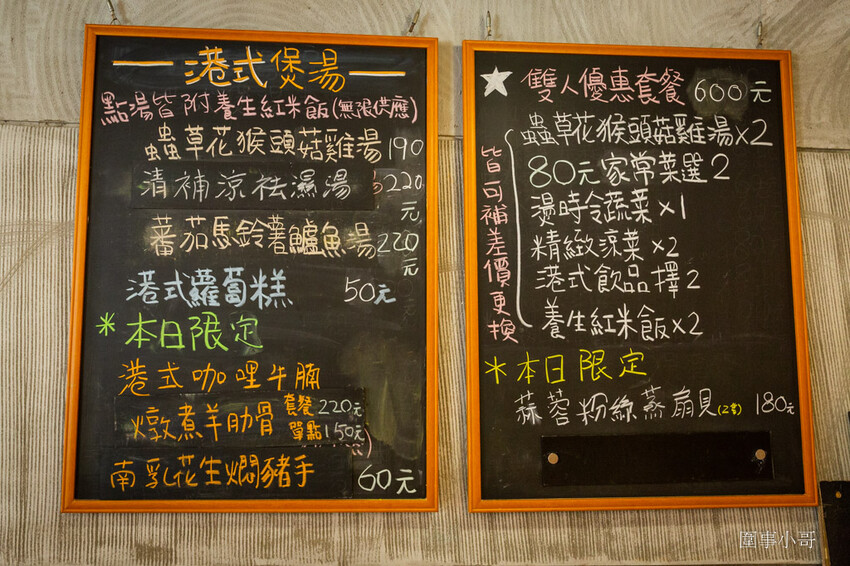 港式煲湯
點湯皆附養生紅米飯(無限供應)
蟲草花猴頭菇雞湯190
清補涼祛濕湯 220元
蕃茄馬鈴薯鱸魚湯220元
港式蘿蔔糕 50元
*本日限定
港式咖哩牛腩
燉煮羊肋骨 套餐220元 單點150元
南乳花生燜豬手 60元
雙人優惠套餐 600元
皆可補差價更換
蟲草花猴頭菇雞湯x2
80元家常菜選2
燙時令蔬菜x1
精緻涼菜x2
港式飲品擇2
養生紅米飯x2
*本日限定
蒜蓉粉絲蒸扇貝 180元
圍事小哥